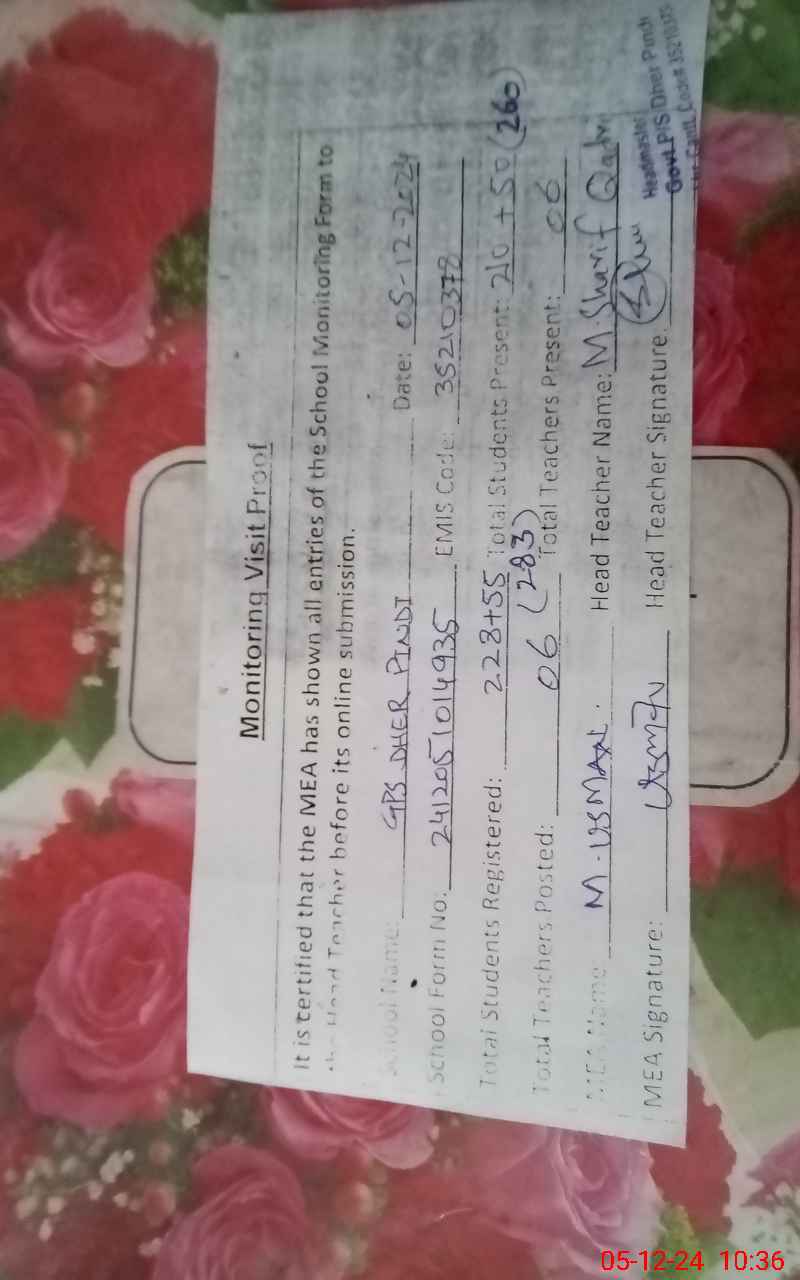 Monitoring Visit Proof
It is certified that the MEA has shown all entries of the School Monitoring Form to
the Head Teacher before its online submission.
School Name: GPS DHER PINDI Date: 05-12-2024
School Form No: 2412051014935 EMIS Code: 35210378
Total Students Registered: 228+55 (283) Total Students Present: 210+50 (260)
Total Teachers Posted: 06 Total Teachers Present: 06
MEA Name: M. USMAN. Head Teacher Name: M. Sharif Qadri
MEA Signature: Head Teacher Signature:
Headmaster
Govt. P/S Dher Pindi
05-12-24 10:36